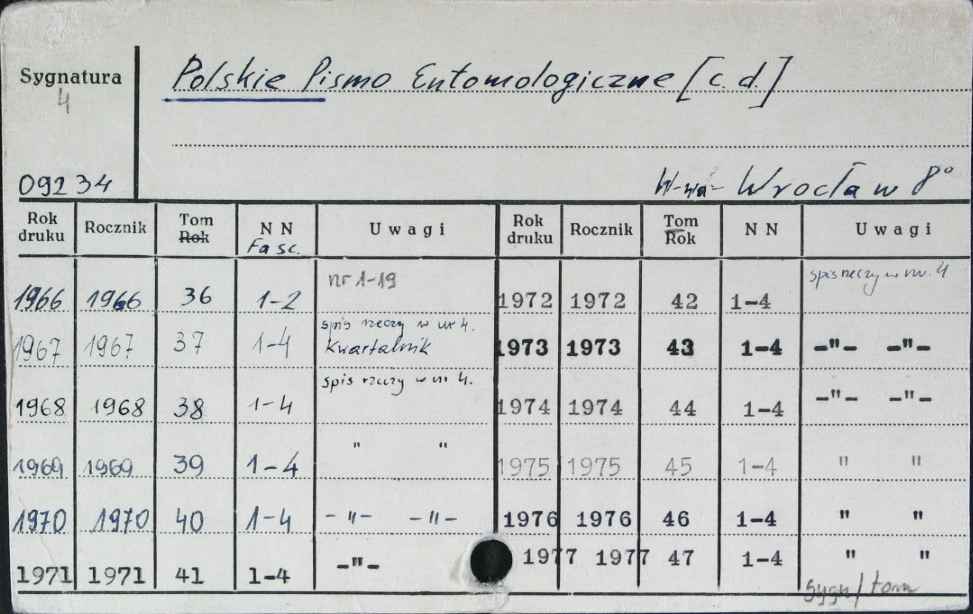 Sygnatura
4
Polskie Pismo Entomologiczne [c. d.]
09234
W-wa- Wrocław 8°
Rok druku Rocznik Tom Rok N N Fasc. Uwagi Rok druku Rocznik Tom Rok N N Uwagi
1966 1966 36 1-2 nr 1-19 1972 1972 42 1-4 spis rzeczy w nr. 4
1967 1967 37 1-4 spis rzeczy w nr 4. Kwartalnik 1973 1973 43 1-4 -"- -"-
1968 1968 38 1-4 spis rzeczy w nr 4. 1974 1974 44 1-4 -"- -"-
1969 1969 39 1-4 " " 1975 1975 45 1-4 " "
1970 1970 40 1-4 -"- -"- 1976 1976 46 1-4 " "
1971 1971 41 1-4 -"- 1977 1977 47 1-4 " "
Sygn/tom